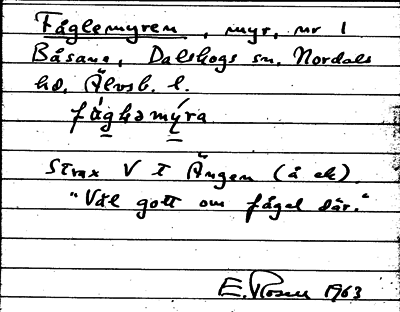 Fåglemyren, myr, nr 1
Båsane, Dalskogs sn. Nordals
hd. Älvsb. l.
fågləmýra
Strax V t Ängen (å ek).
"Väl gott om fågel där."
E. Rosell 1963